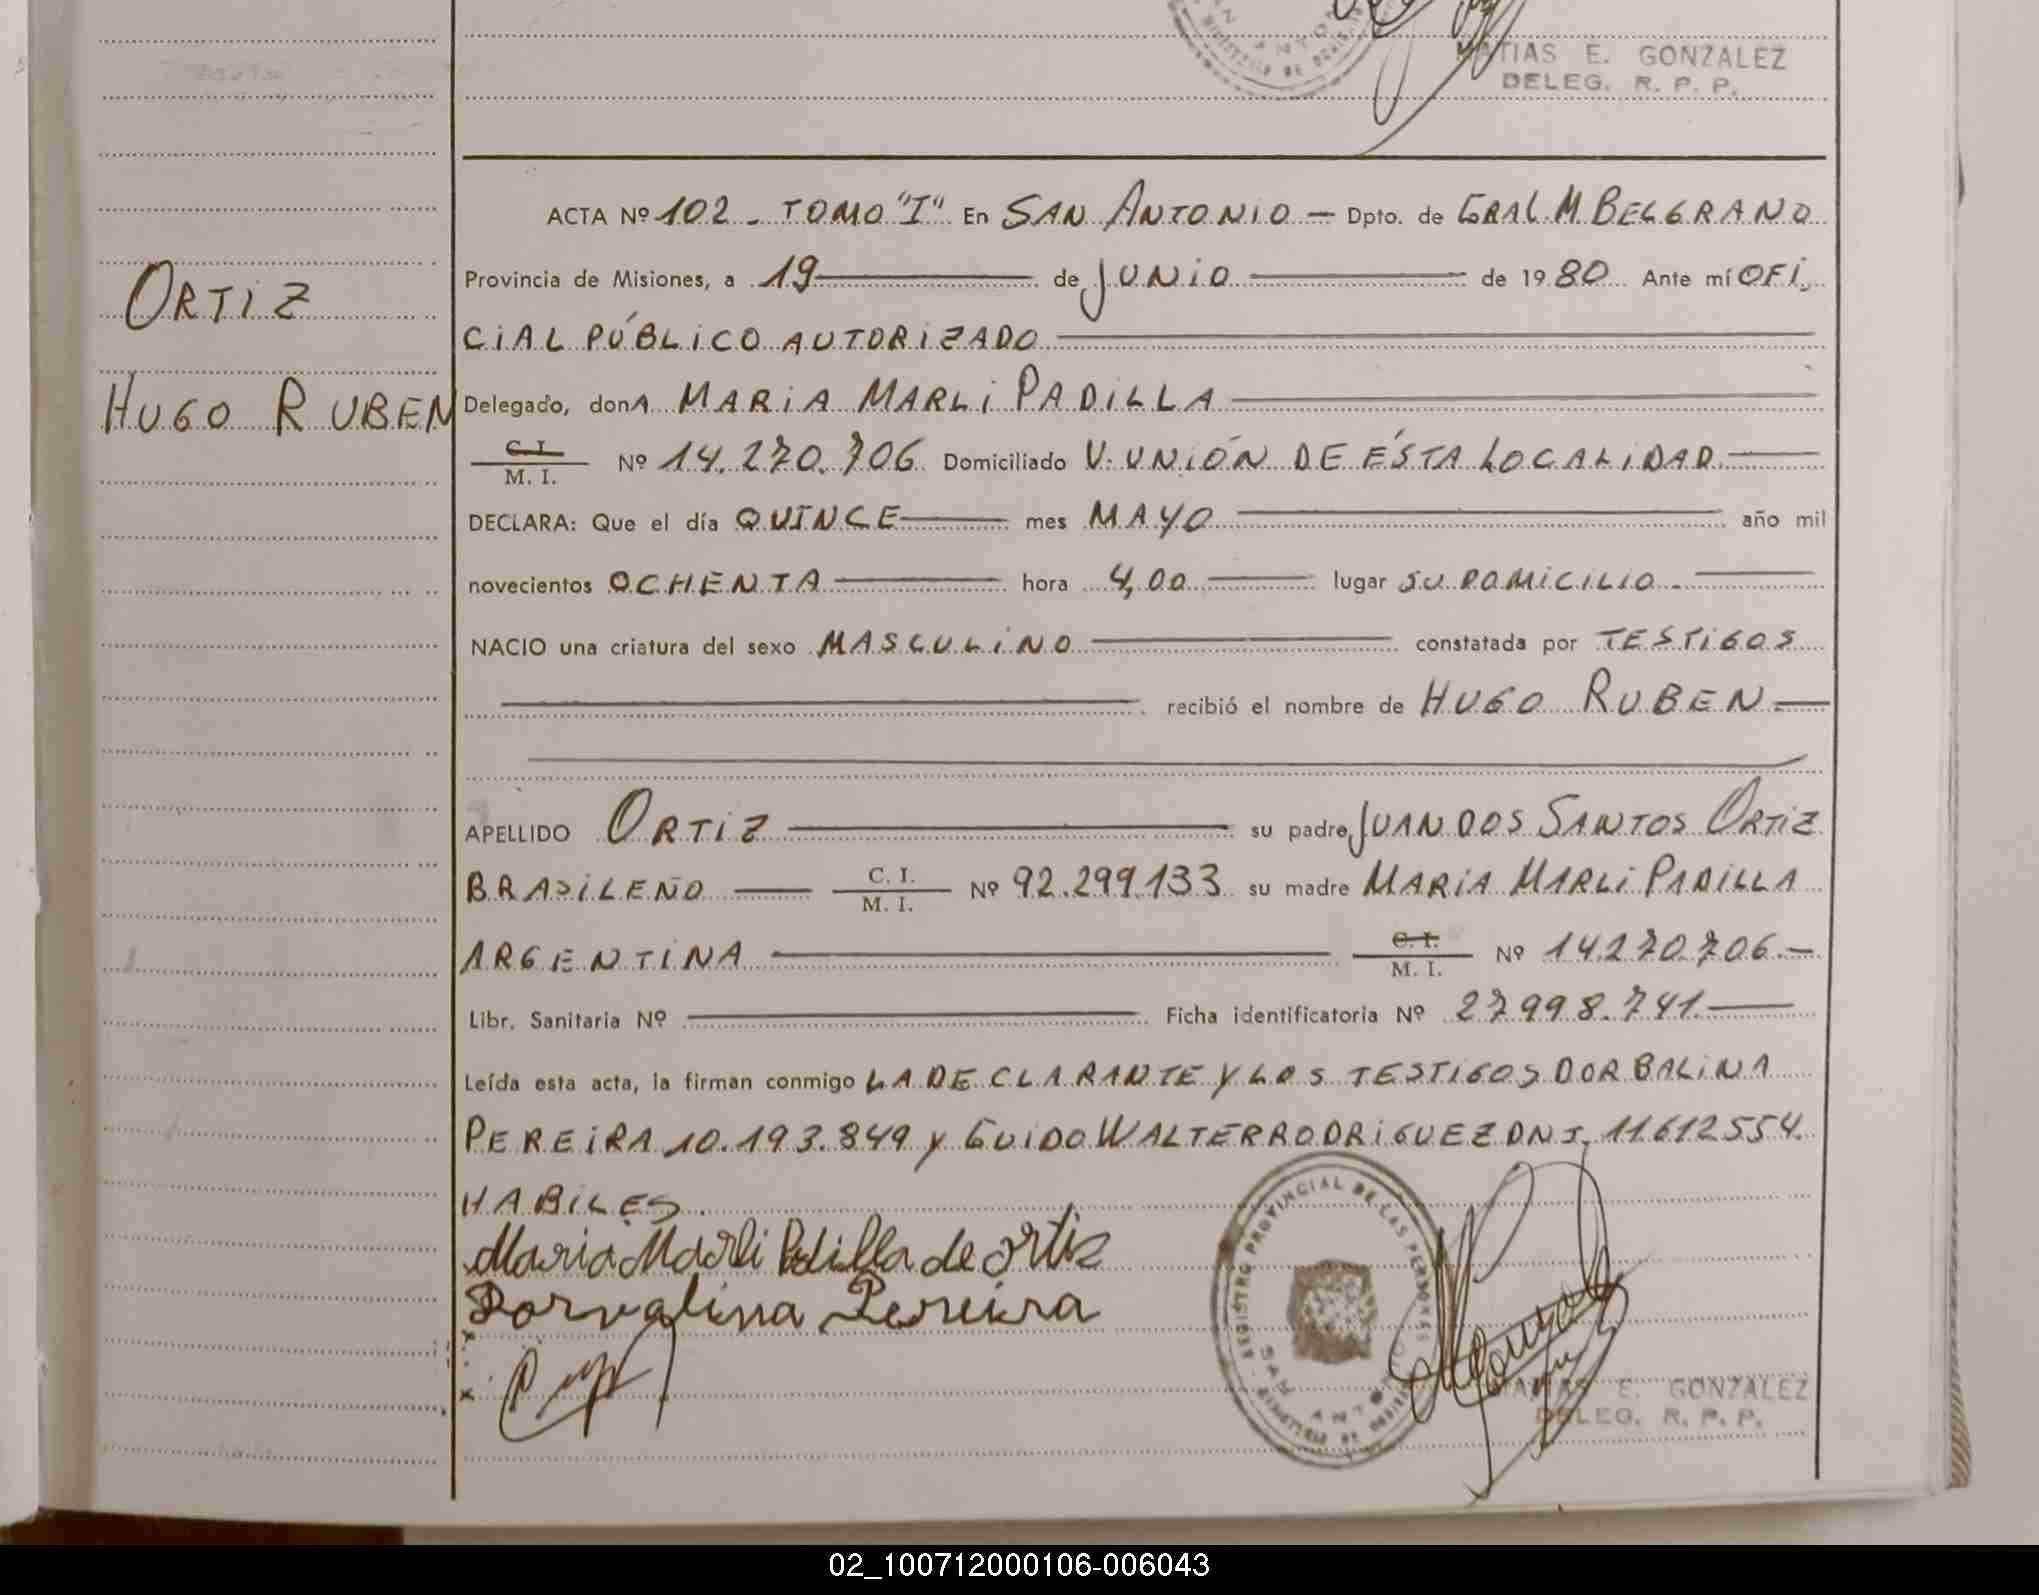 MATIAS E. GONZALEZ
DELEG. R. P. P.
ORTIZ
HUGO RUBEN
ACTA Nº 102 - TOMO "I" En SAN ANTONIO - Dpto. de GRAL. M. BELGRANO
Provincia de Misiones, a 19 de JUNIO de 1980 Ante mí OFI,
CIAL PÚBLICO AUTORIZADO
Delegado, donA MARIA MARLI PADILLA
C. I.
M. I. Nº 14.270.706 Domiciliado V. UNIÓN DE ÉSTA LOCALIDAD
DECLARA: Que el día QUINCE mes MAYO año mil
novecientos OCHENTA hora 4,00 lugar SU DOMICILIO -
NACIO una criatura del sexo MASCULINO constatada por TESTIGOS
recibió el nombre de HUGO RUBEN -
APELLIDO ORTIZ su padre JUAN DOS SANTOS ORTIZ
BRASILEÑO C. I.
M. I. Nº 92.299.133 su madre MARIA MARLI PADILLA
ARGENTINA C. I.
M. I. Nº 14.270.706.-
Libr. Sanitaria Nº Ficha identificatoria Nº 27.998.741.
Leída esta acta, la firman conmigo LA DECLARANTE Y LOS TESTIGOS DORBALINA
PEREIRA 10.193.849 y GUIDO WALTER RODRIGUEZ DNI. 11612554.
HABILES.
Maria Marli Padilla de ortiz
Dorvalina Pereira
REGISTRO PROVINCIAL DE LAS PERSONAS
SAN ANTONIO
MINISTERIO DE GOBIERNO
MATIAS E. GONZALEZ
DELEG. R. P. P.
02_100712000106-006043